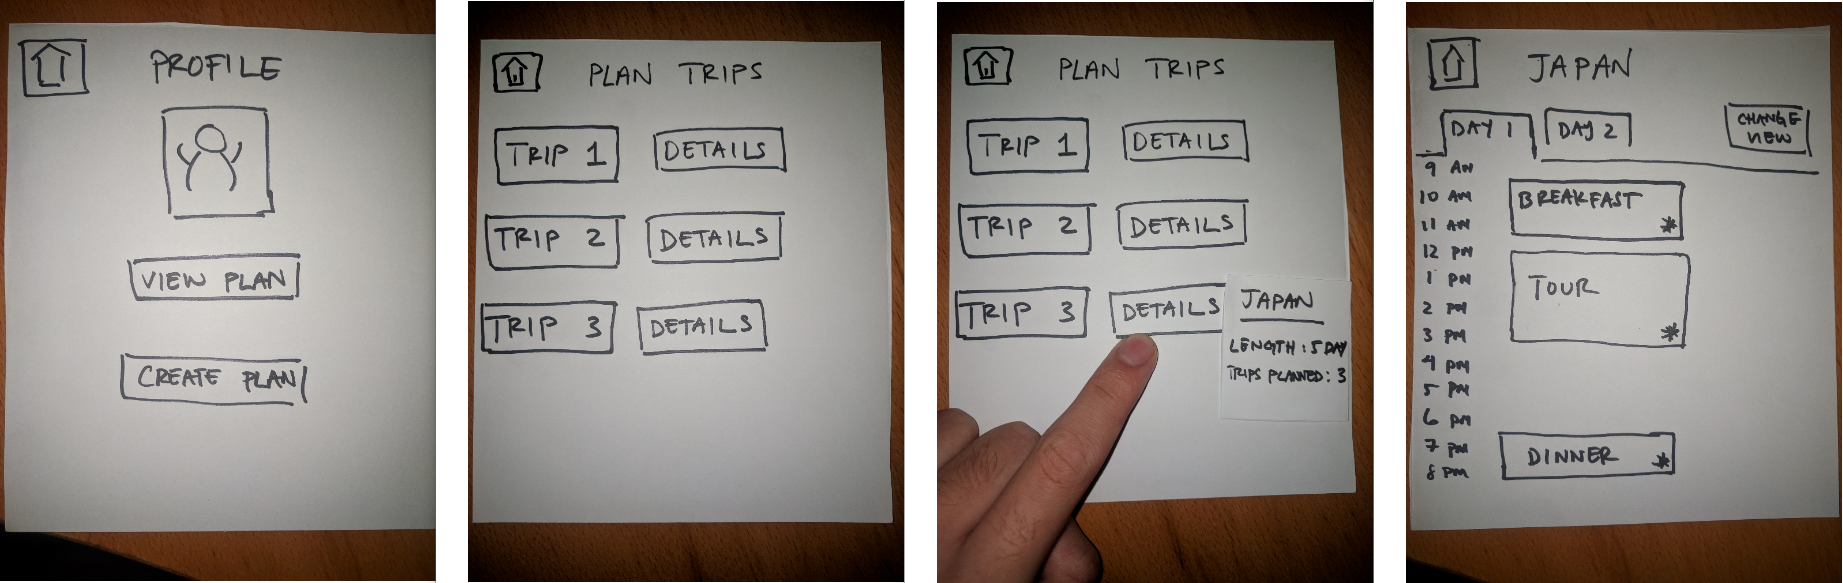 PROFILE
VIEW PLAN
CREATE PLAN
PLAN TRIPS
TRIP 1 DETAILS
TRIP 2 DETAILS
TRIP 3 DETAILS
PLAN TRIPS
TRIP 1 DETAILS
TRIP 2 DETAILS
TRIP 3 DETAILS
JAPAN
LENGTH : 5 DAY
TRIPS PLANNED : 3
JAPAN
DAY 1 DAY 2
CHANGE
VIEW
9 AM
10 AM
BREAKFAST *
11 AM
12 PM
1 PM
TOUR *
2 PM
3 PM
4 PM
5 PM
6 PM
7 PM
DINNER *
8 PM